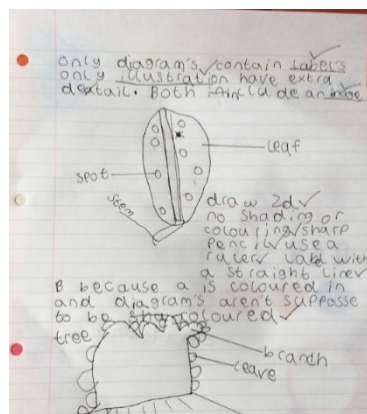 only diagram's contain labels
only illustration have extra
dextail. Both include an image
leaf
spot
stem
draw 2d
no shading or
colouring sharp
pencil use a
ruler label with
a straight line
B because a is coloured in
and diagram's aren't suppasse
to be coloured
tree
branch
leave